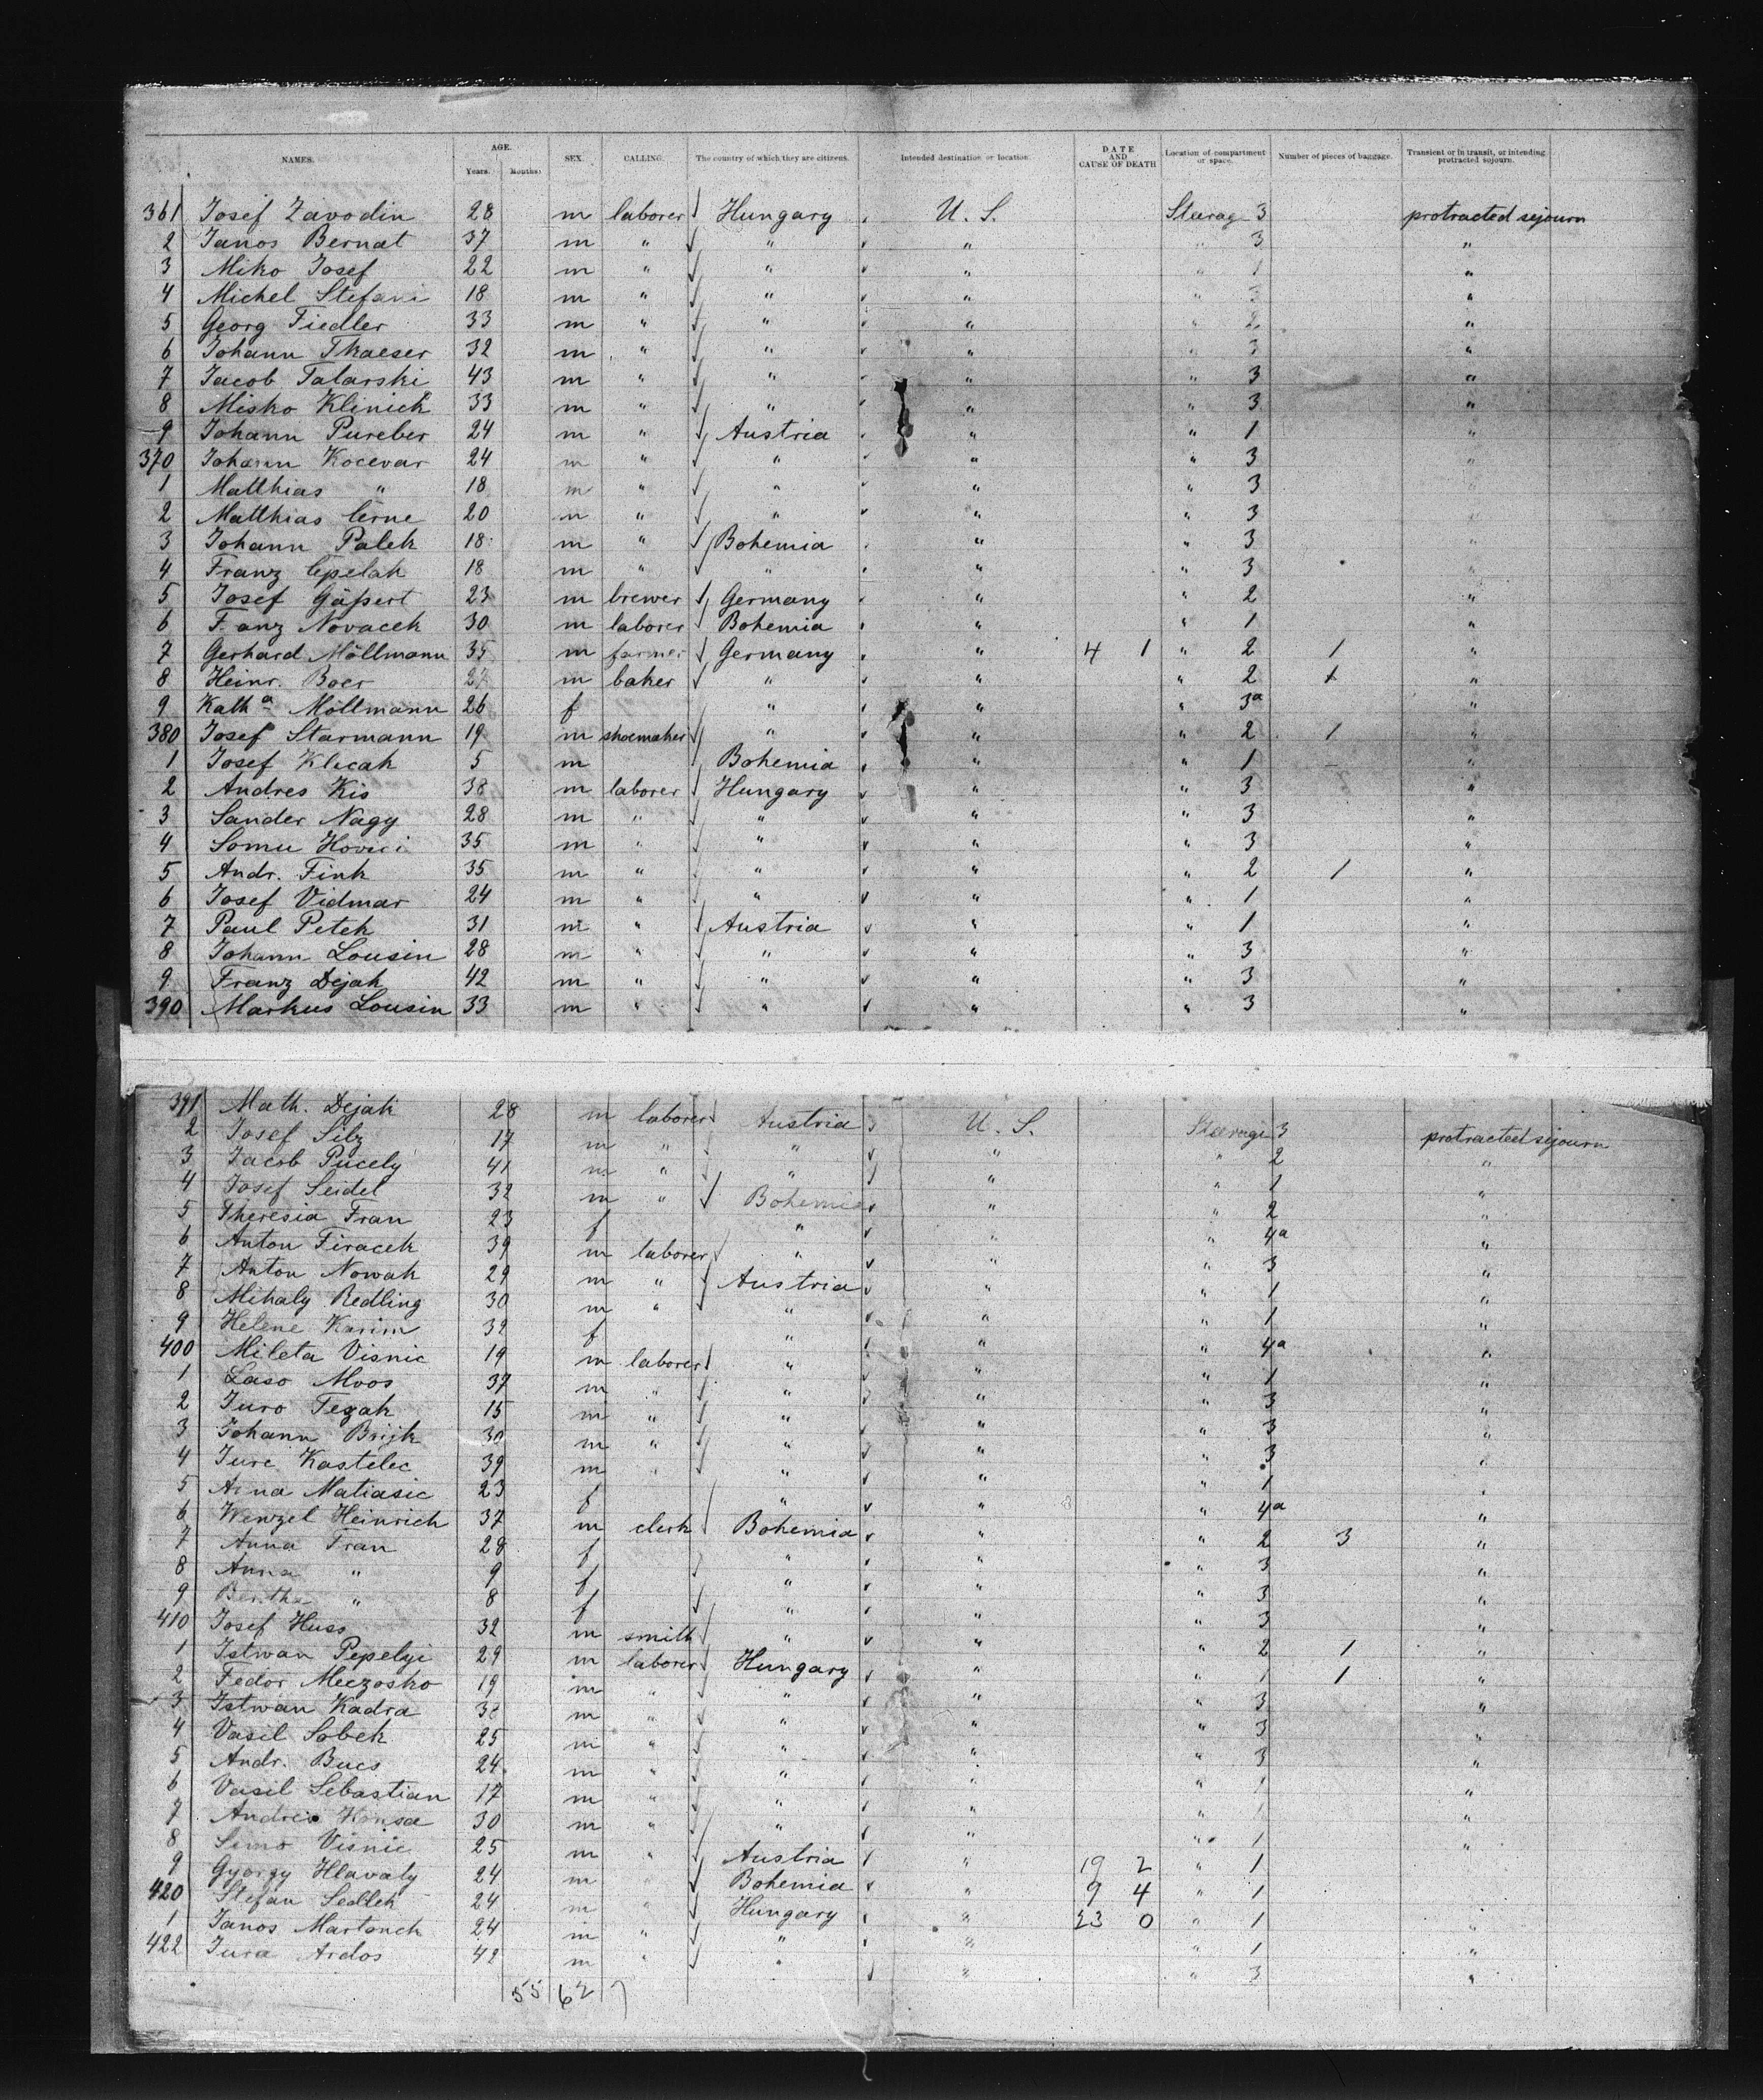 NAMES. AGE. Years. Months. SEX. CALLING. The country of which they are citizens. Intended destination or location. DATE AND CAUSE OF DEATH Location of compartment or space. Number of pieces of baggage. Transient or in transit, or intending protracted sojourn.
361 Josef Zavodin 28 m laborer Hungary U. S. Steerag 3 protracted sejourn
2 Janos Bernat 37 m " " " " 3 "
3 Miko Josef 22 m " " " " 1 "
4 Michel Stefani 18 m " " " " 3 "
5 Georg Fiedler 33 m " " " " 2 "
6 Johann Tkaeser 32 m " " " " 3 "
7 Jacob Talarski 43 m " " " " 3 "
8 Misko Klinick 33 m " " " " 3 "
9 Johann Pureber 24 m " Austria " " 1 "
370 Johann Kocevar 24 m " " " " 3 "
1 Matthias " 18 m " " " " 3 "
2 Matthias Cerne 20 m " " " " 3 "
3 Johann Palek 18 m " Bohemia " " 3 "
4 Franz Cepelak 18 m " " " " 3 "
5 Josef Gäßert 23 m brewer Germany " " 2 "
6 F anz Novacek 30 m laborer Bohemia " " 1 "
7 Gerhard Möllmann 35 m farmer Germany " 4 1 " 2 1 "
8 Heinr. Boer m baker " " " 2 "
9 Kath a Möllmann 26 f " " " 3a "
380 Josef Starmann 19 m shoemaker " " " 2 1 "
1 Josef Klicak 5 m Bohemia " " 1 "
2 Andres Kis 38 m laborer Hungary " " 3 "
3 Sander Nagy 28 m " " " " 3 "
4 Somu 35 m " " " " 3 "
5 Andr. Fink 35 m " " " " 2 1 "
6 Josef Vidmar 24 m " " " " 1 "
7 Paul Petek 31 m " Austria " " 1 "
8 Johann Lousin 28 m " " " " 3 "
9 Franz Dejak 42 m " " " " 3 "
390 Markus Lousin 33 m " " " " 3 "
391 Math. Dejak 28 m laborer Austria U. S. Steerage 3 protracted sejourn
2 Josef Silz 17 m " " " " 2 "
3 Jacob Pucely 41 m " " " " 1 "
4 Josef Seidel 32 m " Bohemia " " 2 "
5 Theresia Fran 23 f " " " 4a "
6 Anton Firacek 39 m laborer " " " 3 "
7 Anton Nowak 29 m " Austria " " 1 "
8 Mihaly Redling 30 m " " " " 1 "
9 Helene Karim 32 f " " " 4a "
400 Mileta Visnic 19 m laborer " " " 1 "
1 Laso Moos 37 m " " " " 3 "
2 Juro Tezak 15 m " " " " 3 "
3 Johann Brijk 30 m " " " " 3 "
4 Jure Kastelec 39 m " " " " 1 "
5 Anna Matiasic 23 f " " " 4a "
6 Wenzel Heinrich 37 m clerk Bohemia " " 2 3 "
7 Anna Fran 28 f " " " 3
8 Anna " 9 f " " " 3
9 Bertha " 8 f " " " 3
410 Josef Huss 32 m smith " " " 2 1 "
1 Istwan Pepelyi 29 m laborer Hungary " " 1 1 "
2 Fedor Meczosko 19 m " " " " 3 "
3 Istwan Kadra m " " " " 3 "
4 Vasil Sobek 25 m " " " " 3 "
5 Andr. Bucs 24 m " " " " 1 "
6 Vasil Sebastian 17 m " " " " 1 "
7 Andreis 30 m " " " " 1 "
8 Simo Visnic 25 m " Austria " 19 2 " 1
9 Gyorgy Hlavaty 24 m " Bohemia " 9 4 " 1
420 Stefan Sedlek 24 m " Hungary " 23 0 " 1 "
1 Janos Martonek 24 m " " " " 1 "
422 Jura Ardos 42 m " " " " 3 "
55 62 7